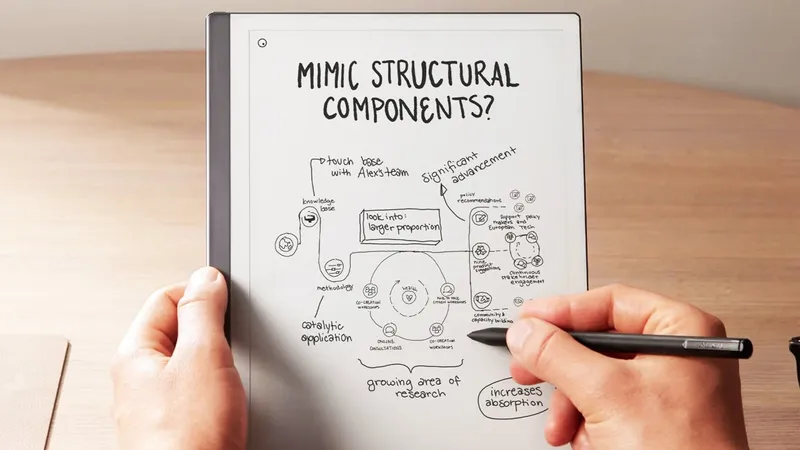 MIMIC STRUCTURAL
COMPONENTS?
touch base
with Alex's team
significant
advancement
knowledge
base
policy
recommendations
look into:
larger proportion
support policy
makers and
European Tech
nine
product
suggestions
continuous
stakeholder
engagement
methodology
CO-CREATION
WORKSHOPS
FACE TO FACE
CITIZEN WORKSHOPS
community &
capacity building
catalytic
application
ONLINE
CONSULTATIONS
CO-CREATION
WORKSHOPS
growing area of
research
increases
absorption